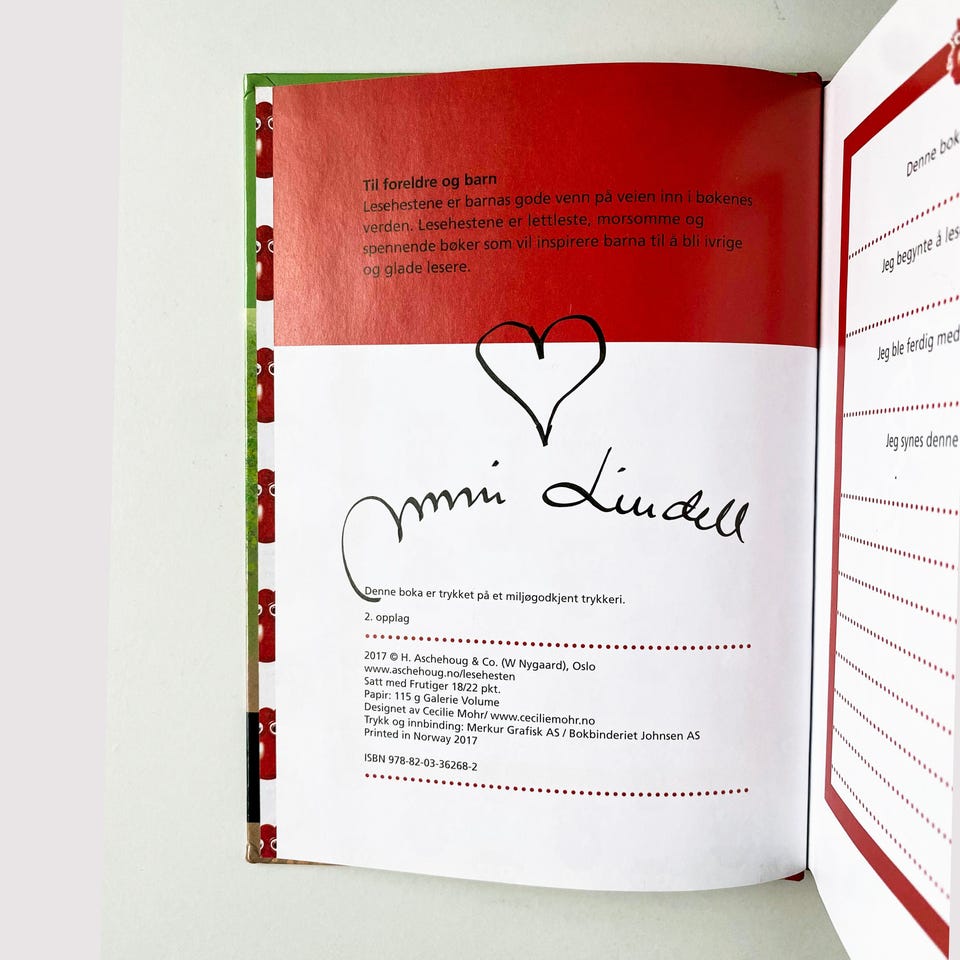 Til foreldre og barn
Lesehestene er barnas gode venn på veien inn i bøkenes
verden. Lesehestene er lettleste, morsomme og
spennende bøker som vil inspirere barna til å bli ivrige
og glade lesere.
Lindell
Denne boka er trykket på et miljøgodkjent trykkeri.
2. opplag
2017 © H. Aschehoug & Co. (W Nygaard), Oslo
www.aschehoug.no/lesehesten
Satt med Frutiger 18/22 pkt.
Papir: 115 g Galerie Volume
Designet av Cecilie Mohr/ www.ceciliemohr.no
Trykk og innbinding: Merkur Grafisk AS / Bokbinderiet Johnsen AS
Printed in Norway 2017
ISBN 978-82-03-36268-2
Denne bok
Jeg begynte å les
Jeg ble ferdig med
Jeg synes denne